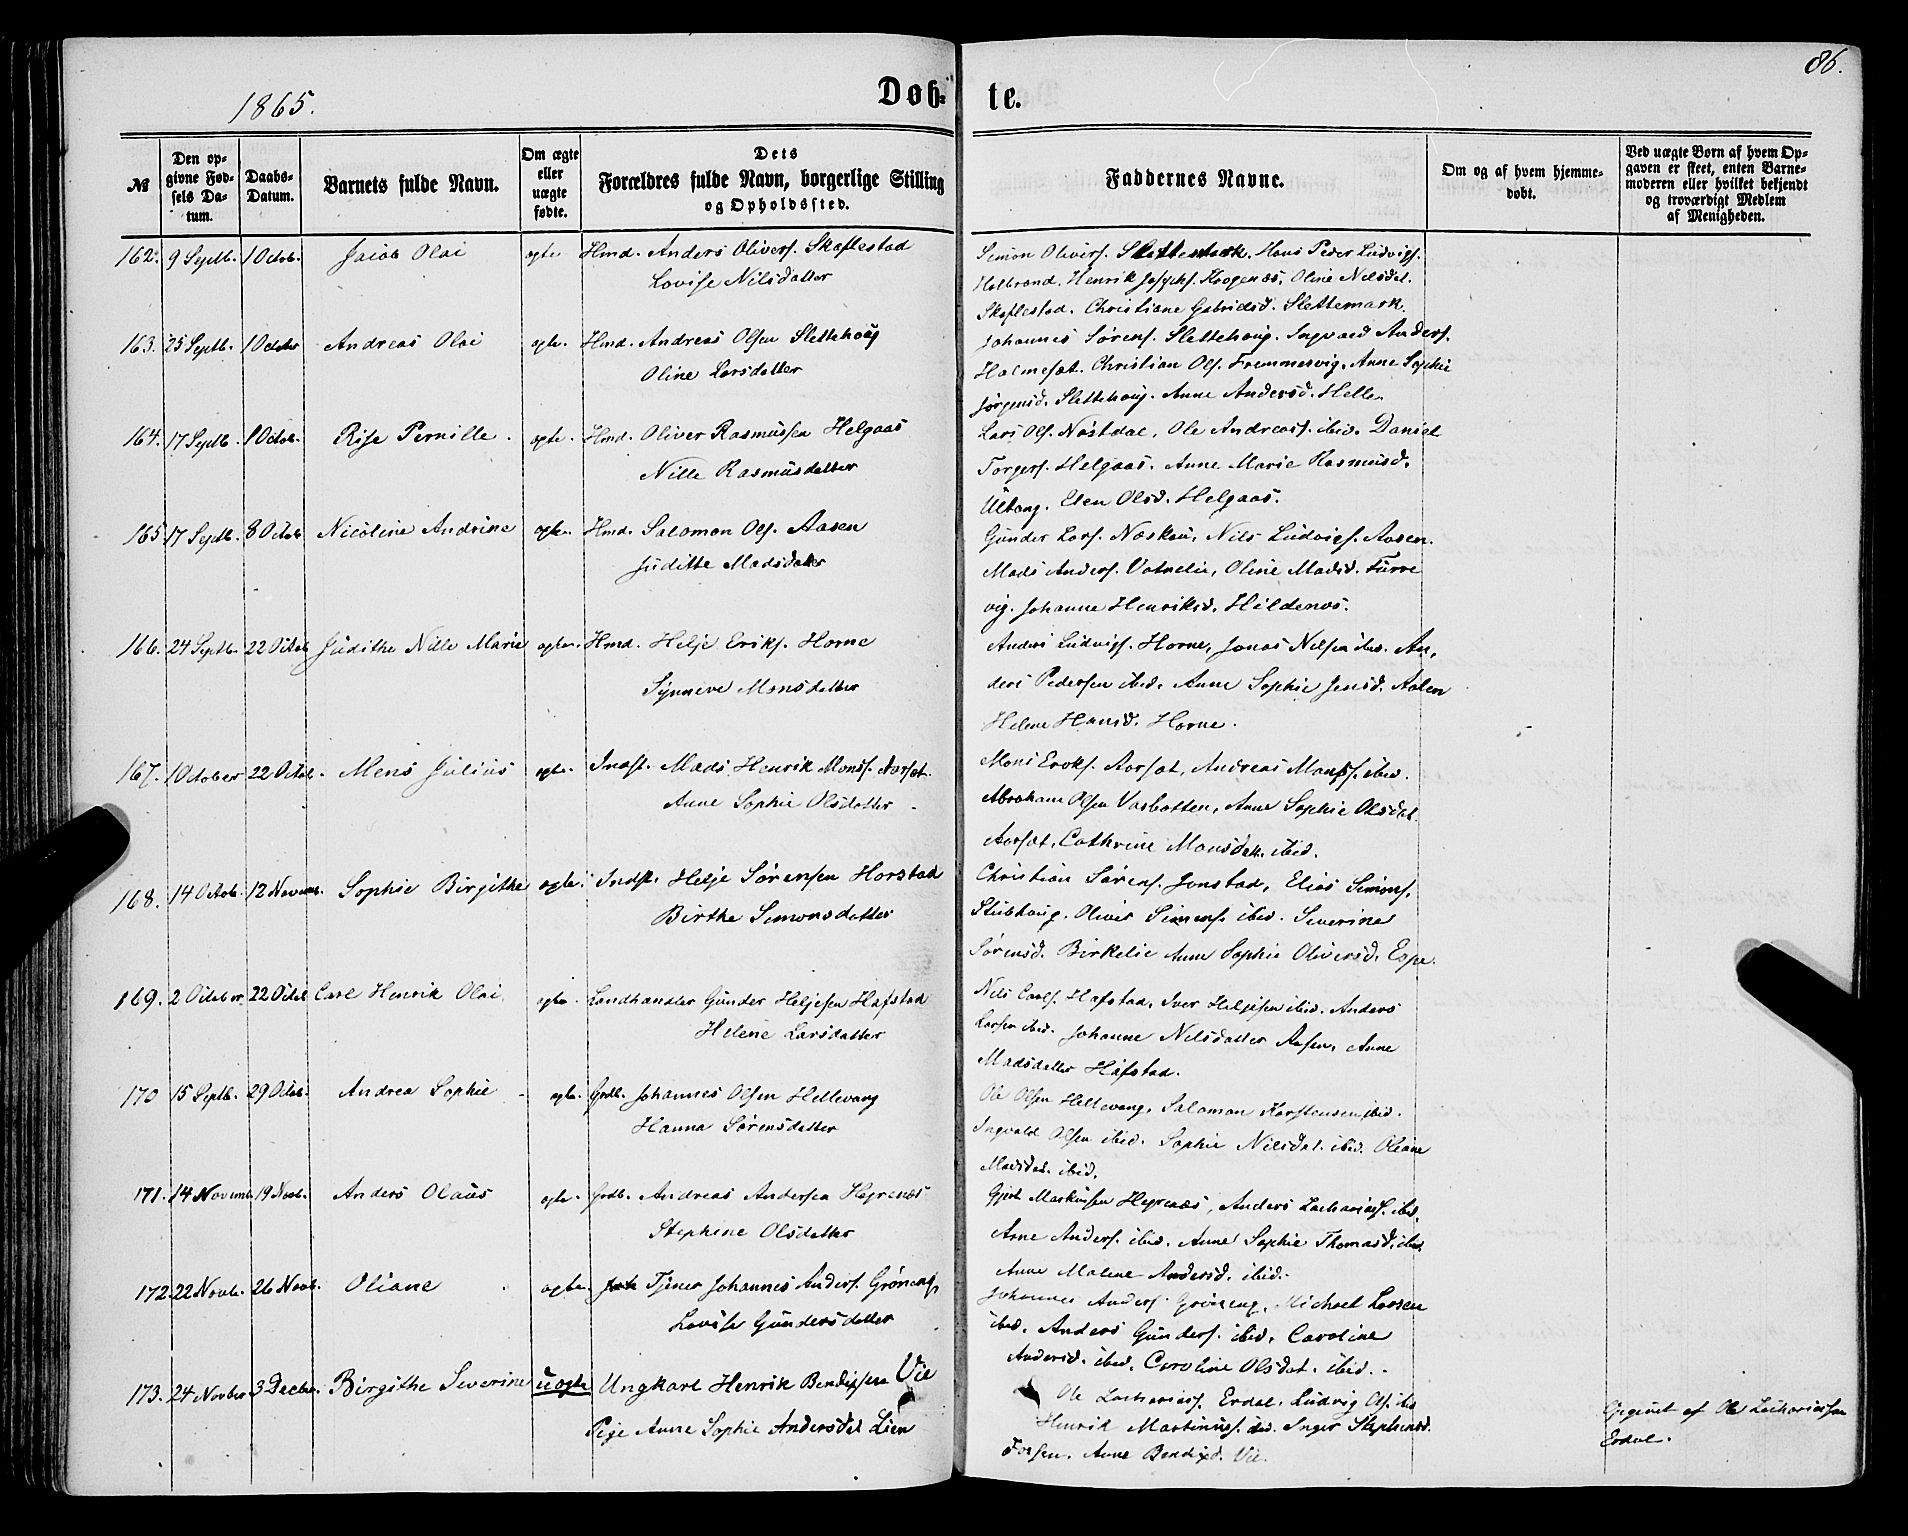 1865.
Døb-
te.
86.
№
Den op-
givne Fød-
sels Da-
tum.
Daabs-
Datum.
Barnets fulde Navn.
Om ægte
eller
uægte
fødte.
Dets
Forældres fulde Navn, borgerlige Stilling
og Opholdssted.
Faddernes Navne.
Om og af hvem hjemme-
døbt.
Ved uægte Børn af hvem Op-
gaven er skeet, enten Barne-
moderen eller hvilket bekjendt
og troværdigt Medlem
af Menigheden.
162. 9 Septb. 1 Octob. Jacob Olai ægte Hmd. Anders Olivers. Skaflestad
Lovise Nilsdatter
Simon Olivers. Slettemark. Hans Peder Ludvigs.
Henrik Josephs. Krogenæs, Oline Nilsdat.
Skaflestad. Christiane Gabrielsd. Slettemark.
163. 25 Septb. 1 October Andreas Olai ægte. Hmd. Andreas Olsen Slettehoug
Oline Larsdatter
Johannes Sørens. Slettehoug. Ingvald Anders.
Holmesæt. Christian Ols. Fremmersvig. Anne Sophie
Jørgensd. Slettehoug. Anne Andersd. Helle.
164. 17 Septb. 1 Octob. Rise Pernille. ægte. Hmd. Oliver Rasmussen Helgaas
Nille Rasmusdatter
Lars Ols. Nøstdal, Ole Andreass. ibid. Daniel
Torgers. Helgaas. Anne Marie Rasmusd.
Elen Olsd. Helgaas.
165 17 Septb. 8 Octob. Nicoline Andrine ægte. Hmd. Salomon Ols. Aasen
Juditte Madsdatter
Gunder Lars. Næskau, Nils Ludvigs. Aasen.
Mads Anders. Vatnelie, Oline Madsd. Furre
vig. Johanne Henriksd. Hildenæs.
166. 24 Septb. 22 Octob. Judithe Nille Marie ægte. Hmd. Helje Eriks. Horne
Synneve Monsdatter
Anders Ludvigs. Horne, Jonas Nilsen ibid. An,
ders Pedersen ibid. Anne Sophie Jensd. Aasen
Helene Hansd. Horne.
167. 1 October 22 Octob. Mons Julius ægte. Indst. Mads Henrik Monss. Aarsæt.
Anne Sophie Olsdatter.
Mons Eriks. Aarsæt, Andreas Monss. ibid.
Abraham Olsen Varbotten, Anne Sophie Olsdat.
Aarsæt, Cathrine Monsdat. ibid.
168. 14 Octob. 12 Novemb. Sophie Birgithe ægte. Indst. Helje Sørensen Horstad
Birthe Simonsdatter
Christian Sørens. Jonstad, Elias Simons.
Stubhoug. Oliver Simons. ibid. Severine
Sørensd. Birkelie Anne Sophie Oliversd. Espe.
169. 2 October. 22 Octob Carl Henrik Olai ægte. Landhandler Gunder Heljesen Hafstad
Helene Larsdatter
Nils Carls. Hafstad, Iver Heljesen ibid. Anders
Larsen ibid. Johanne Nilsdatter Aasen, Anne
Madsdatter Hafstad.
170 15 Septb. 29 Octob. Andrea Sophie ægte. Grdb. Johannes Olsen Hellevang
Hanna Sørensdatter
Ole Olsen Hellevang, Salomon Karstensen ibid.
Ingvald Olsen ibid. Sophie Nilsdat. ibid. Oliane
Madsdat. ibid.
171. 14 Novemb. 19 Novb. Anders Olaus ægte. Grdb. Andreas Andersen Hegrenæs
Stephine Olsdatter
Gjert Markussen Hegrenæs, Anders Zachariass. ibid.
Arne Anders. ibid. Anne Sophie Thomasd. ibid.
Anne Malene Andersd. ibid.
172 22 Novb. 26 Novb. Oliane ægte. Tjener Johannes Anders. Grøneng
Lovise Gundersdatter
Johannes Anders. Grøneng, Michael Larsen
ibid. Anders Gunders. ibid. Caroline
Andersd. ibid. Caroline Olsdat. ibid.
173. 24 Novber. 3 Decber. Birgithe Severine uægte Ungkarl Henrik Bendixsen Vie
Pige Anne Sophie Andersdat Lien
Ole Zachariass. Erdal. Ludvig Ols. ibid
Henrik Martinuss. ibid. Inger Stephensd.
Anne Bendixd. Vie.
Opgivet af Ole Zachariassen
Erdal.